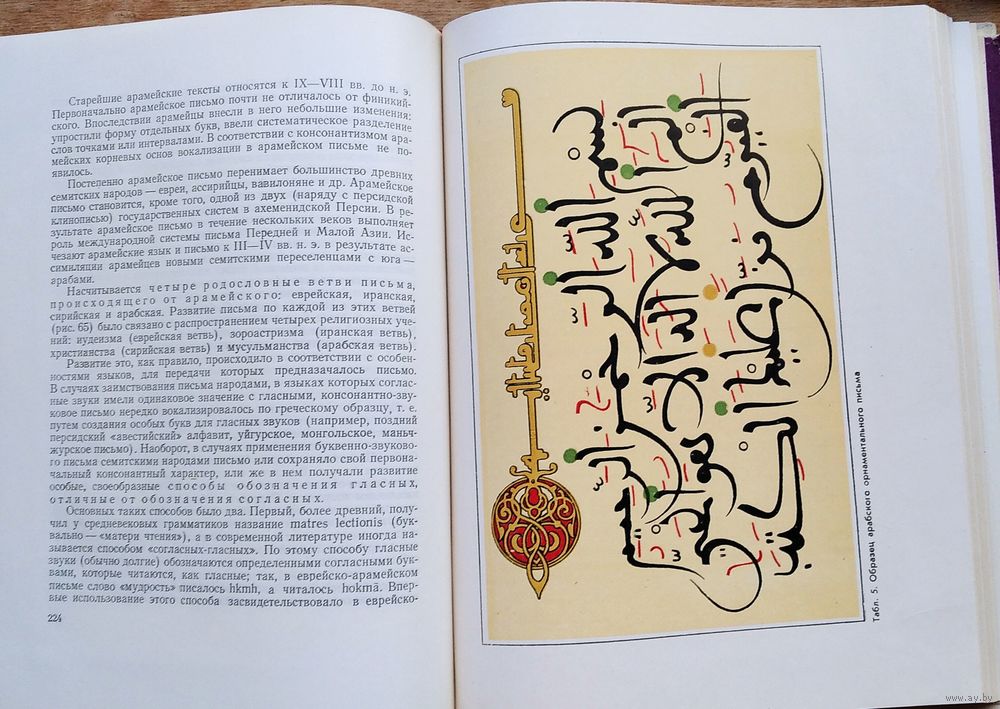 Старейшие арамейские тексты относятся к IX—VIII вв. до н. э.
Первоначально арамейское письмо почти не отличалось от финикий-
ского. Впоследствии арамейцы внесли в него небольшие изменения:
упростили форму отдельных букв, ввели систематическое разделение
слов точками или интервалами. В соответствии с консонантизмом ара-
мейских корневых основ вокализации в арамейском письме не по-
явилось.
Постепенно арамейское письмо перенимает большинство древних
семитских народов — евреи, ассирийцы, вавилоняне и др. Арамейское
письмо становится, кроме того, одной из двух (наряду с персидской
клинописью) государственных систем в ахеменидской Персии. В ре-
зультате арамейское письмо в течение нескольких веков выполняет
роль международной системы письма Передней и Малой Азии. Ис-
чезают арамейские язык и письмо к III—IV вв. н. э. в результате ас-
симиляции арамейцев новыми семитскими переселенцами с юга —
арабами.
Насчитывается четыре родословные ветви письма,
происходящего от арамейского: еврейская, иранская,
сирийская и арабская. Развитие письма по каждой из этих ветвей
(рис. 65) было связано с распространением четырех религиозных уче-
ний: иудеизма (еврейская ветвь), зороастризма (иранская ветвь),
христианства (сирийская ветвь) и мусульманства (арабская ветвь).
Развитие это, как правило, происходило в соответствии с особен-
ностями языков, для передачи которых предназначалось письмо.
В случаях заимствования письма народами, в языках которых соглас-
ные звуки имели одинаковое значение с гласными, консонантно-зву-
ковое письмо нередко вокализировалось по греческому образцу, т. е.
путем создания особых букв для гласных звуков (например, поздний
персидский «авестийский» алфавит, уйгурское, монгольское, мань-
чжурское письмо). Наоборот, в случаях применения буквенно-звуково-
го письма семитскими народами письмо или сохраняло свой первона-
чальный консонантный характер, или же в нем получали развитие
особые, своеобразные способы обозначения гласных,
отличные от обозначения согласных.
Основных таких способов было два. Первый, более древний, полу-
чил у средневековых грамматиков название matres lectionis (бук-
вально — «матери чтения»), а в современной литературе иногда на-
зывается способом «согласных-гласных». По этому способу гласные
звуки (обычно долгие) обозначаются определенными согласными бук-
вами, которые читаются, как гласные; так, в еврейско-арамейском
письме слово «мудрость» писалось hkmh, а читалось hokmā. Впер-
вые использование этого способа засвидетельствовало в еврейско-
224
بسم الله الرحمن الرحيم
الم الله لا اله الا هو الحي
القيوم نزل عليك الكتب
Табл. 5. Образец арабского орнаментального письма
www.ay.by